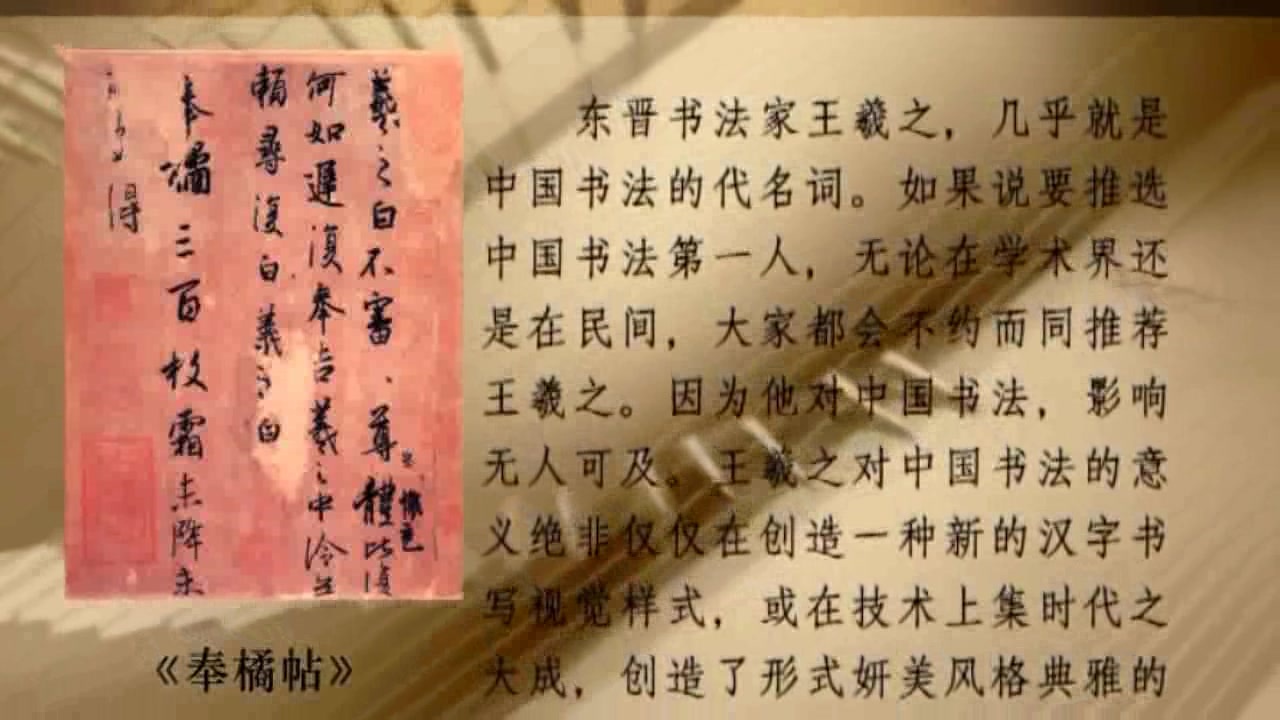 羲之白不審尊體比復
何如遲復奉告羲之中冷無
賴尋復白羲之白
奉橘三百枚霜未降未
可多得
《奉橘帖》
东晋书法家王羲之，几乎就是
中国书法的代名词。如果说要推选
中国书法第一人，无论在学术界还
是在民间，大家都会不约而同推荐
王羲之。因为他对中国书法，影响
无人可及。王羲之对中国书法的意
义绝非仅仅在创造一种新的汉字书
写视觉样式，或在技术上集时代之
大成，创造了形式妍美风格典雅的